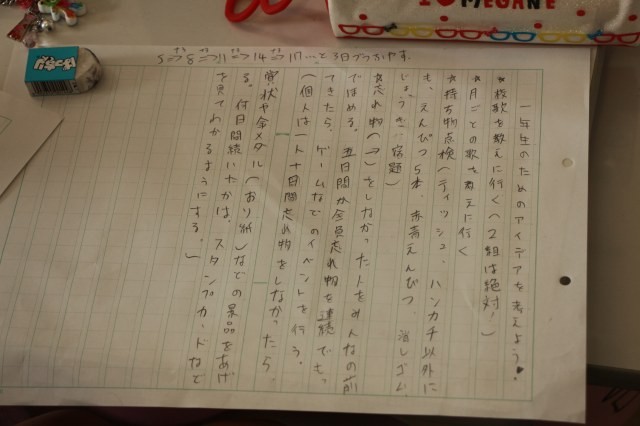 I ♥ MEGANE
5⇒8⇒11⇒14⇒17…と3日づつふやす。
一年生のためのアイデアを考えよう！
*校歌を教えに行く（2組は絶対！）
*月ごとの歌を教えに行く
*持ち物点検（ティッシュ、ハンカチ以外に
も、えんぴつ5本、赤青えんぴつ、消しゴム
じょうぎ、宿題）
*忘れ物（→）をしなかった人をみんなの前
でほめる。五日間か全員忘れ物を連続でも
てきたら、ゲームなどのイベントを行う。
（個人は一人十日間忘れ物をしなかったら、
賞状や金メダル（おり紙）などの景品をあげ
る。何日間続いたかは、スタンプカードなど
を見てわかるようにする。）